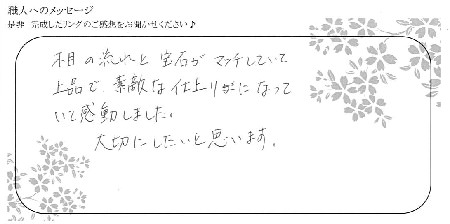 職人へのメッセージ
是非 完成したリングのご感想をお聞かせください♪
木目の流れと宝石がマッチしていて
上品で、素敵な仕上りがになって
いて感動しました。
大切にしたいと思います。